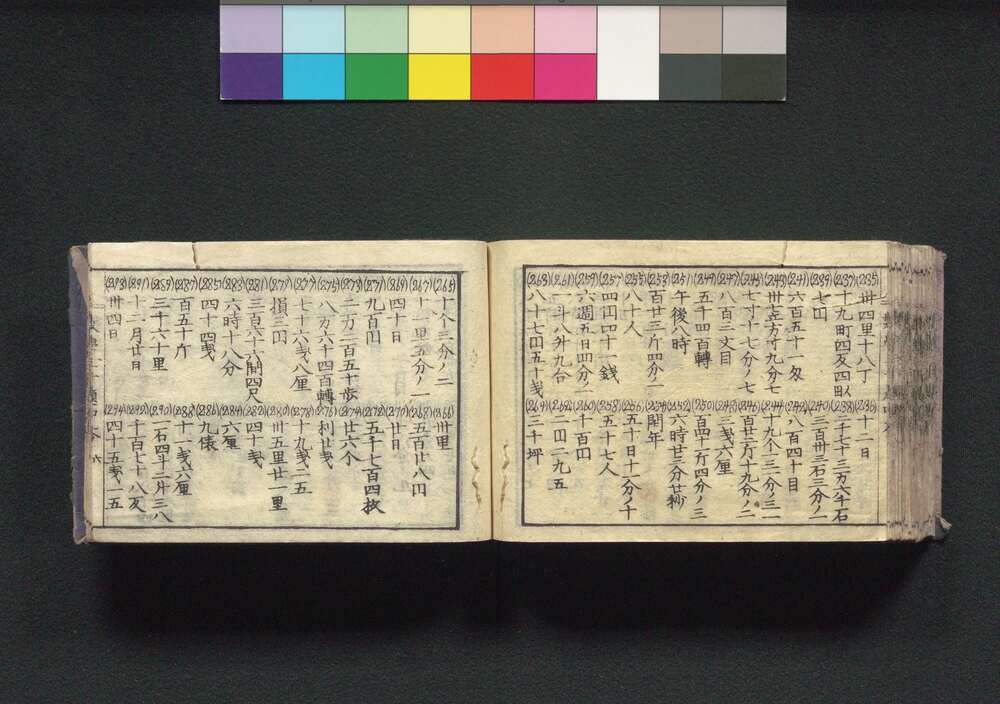 (235) 卅四里十八丁
(236) 十一日
(237) 十九町四反四畝
(238) 二千七十三万六千石
(239) 七円
(240) 三百卅三石三分ノ一
(241) 六百五十一匁
(242) 八百四十目
(243) 卅立方寸九分七
(244) 十九个三二分ノ三一
(245) 七寸十七分ノ七
(246) 百廿二斤十九分ノ二
(247) 八百三丈目
(248) 三戋六厘
(249) 五千四百轉
(250) 百四十二斤四分ノ三
(251) 午後八時
(252) 六時廿三分廿秒
(253) 百廿三斤四分ノ一
(254) 閏年
(255) 八十人
(256) 五十日十二分ノ十
(257) 四円四十一銭
(258) 五十七人
(259) 六週五日四分ノ二
(260) 十百円
(261) 一斗八升九合
(262) 一円二九五
(263) 八十七円五十戋
(264) 三千坪
(265) 十个三分ノ二
(266) 卅里
(267) 十一里五分ノ一
(268) 五百廿八円
(269) 四十日
(270) 廿日
(271) 九百円
(272) 五千七百四枚
(273) 二万二百五十歩
(274) 廿六个
(275) 八万六千四百轉
(276) 利廿戋
(277) 七十六戋八厘
(278) 十九戋二五
(279) 損三円
(280) 卅五里廿一里
(281) 三百六十六間四尺
(282) 四十戋
(283) 六時十八分
(284) 六厘
(285) 四十四戋
(286) 九俵
(287) 百五十斤
(288) 十一戋六厘
(289) 三千六十里
(290) 二石四斗二升三八
(291) 十二月廿日
(292) 千百七十八反
(293) 卅四日
(294) 四十五戋一五
六